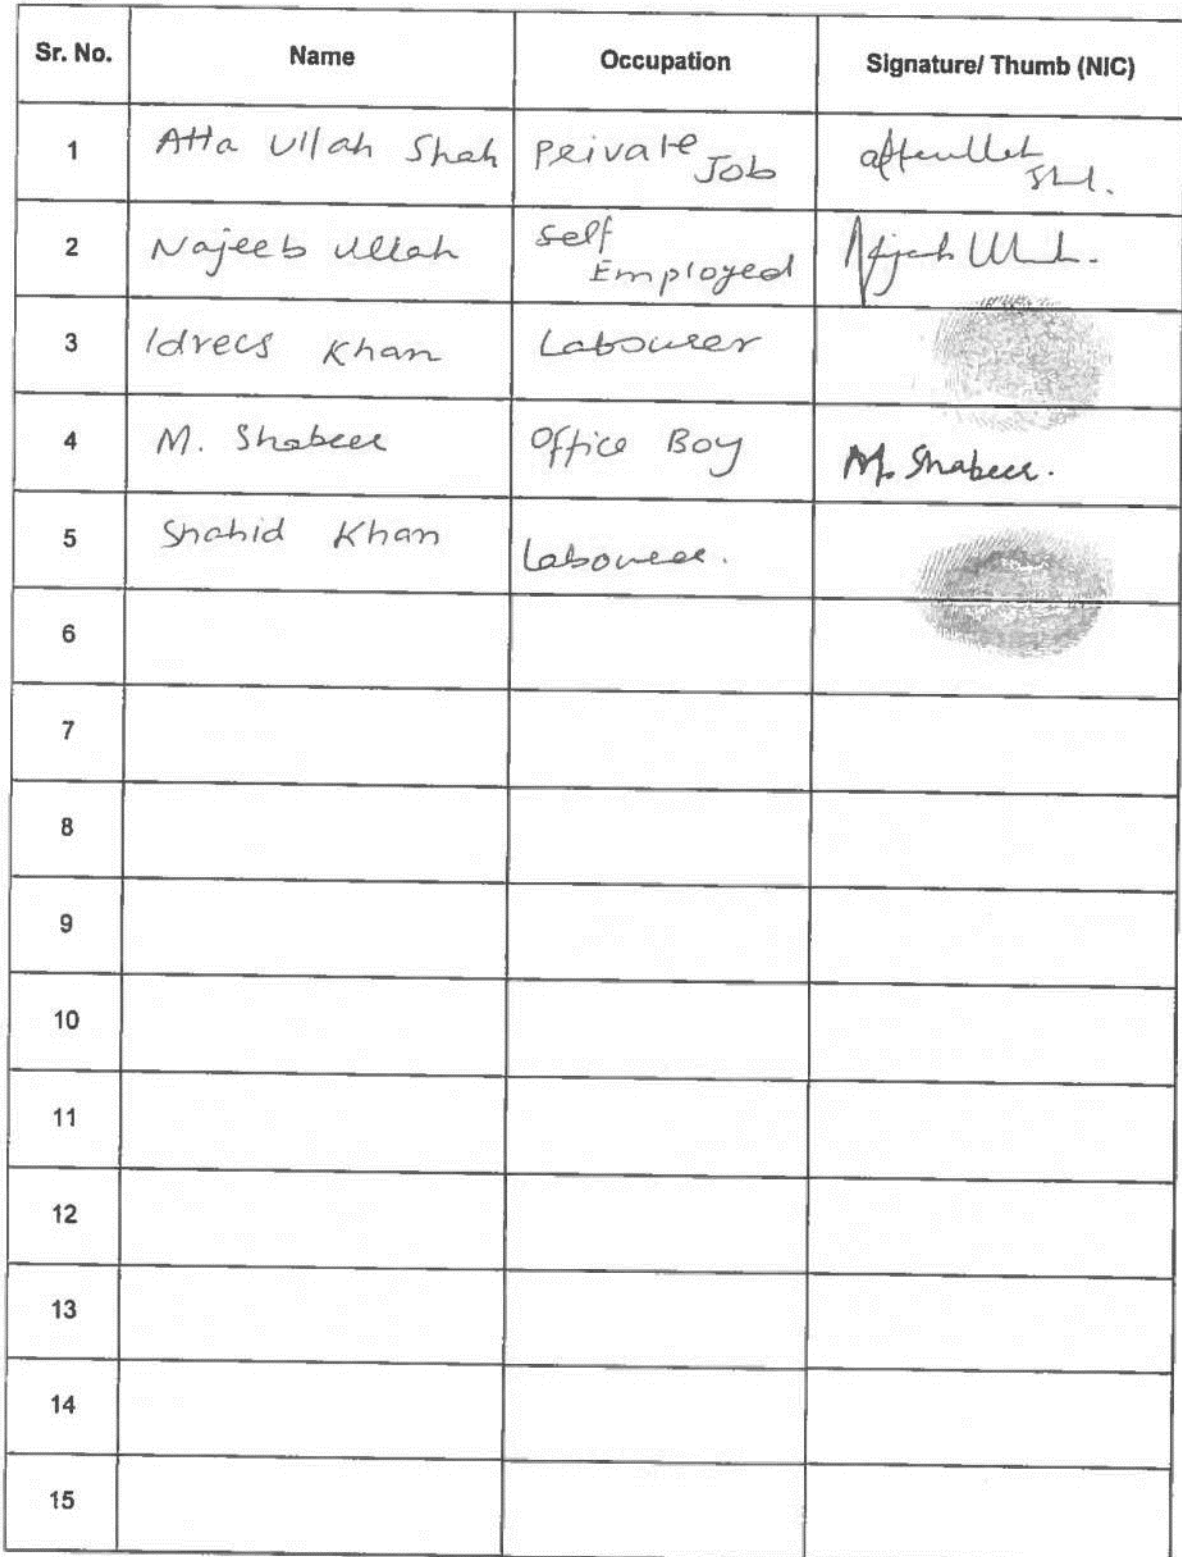 Sr. No. Name Occupation Signature/ Thumb (NIC)
1 Atta Ullah Shah Private Job
2 Najeeb Ullah Self Employed
3 Idrees Khan Labourer
4 M. Shabeer Office Boy M. Shabeer.
5 Shahid Khan Labourer.
6
7
8
9
10
11
12
13
14
15